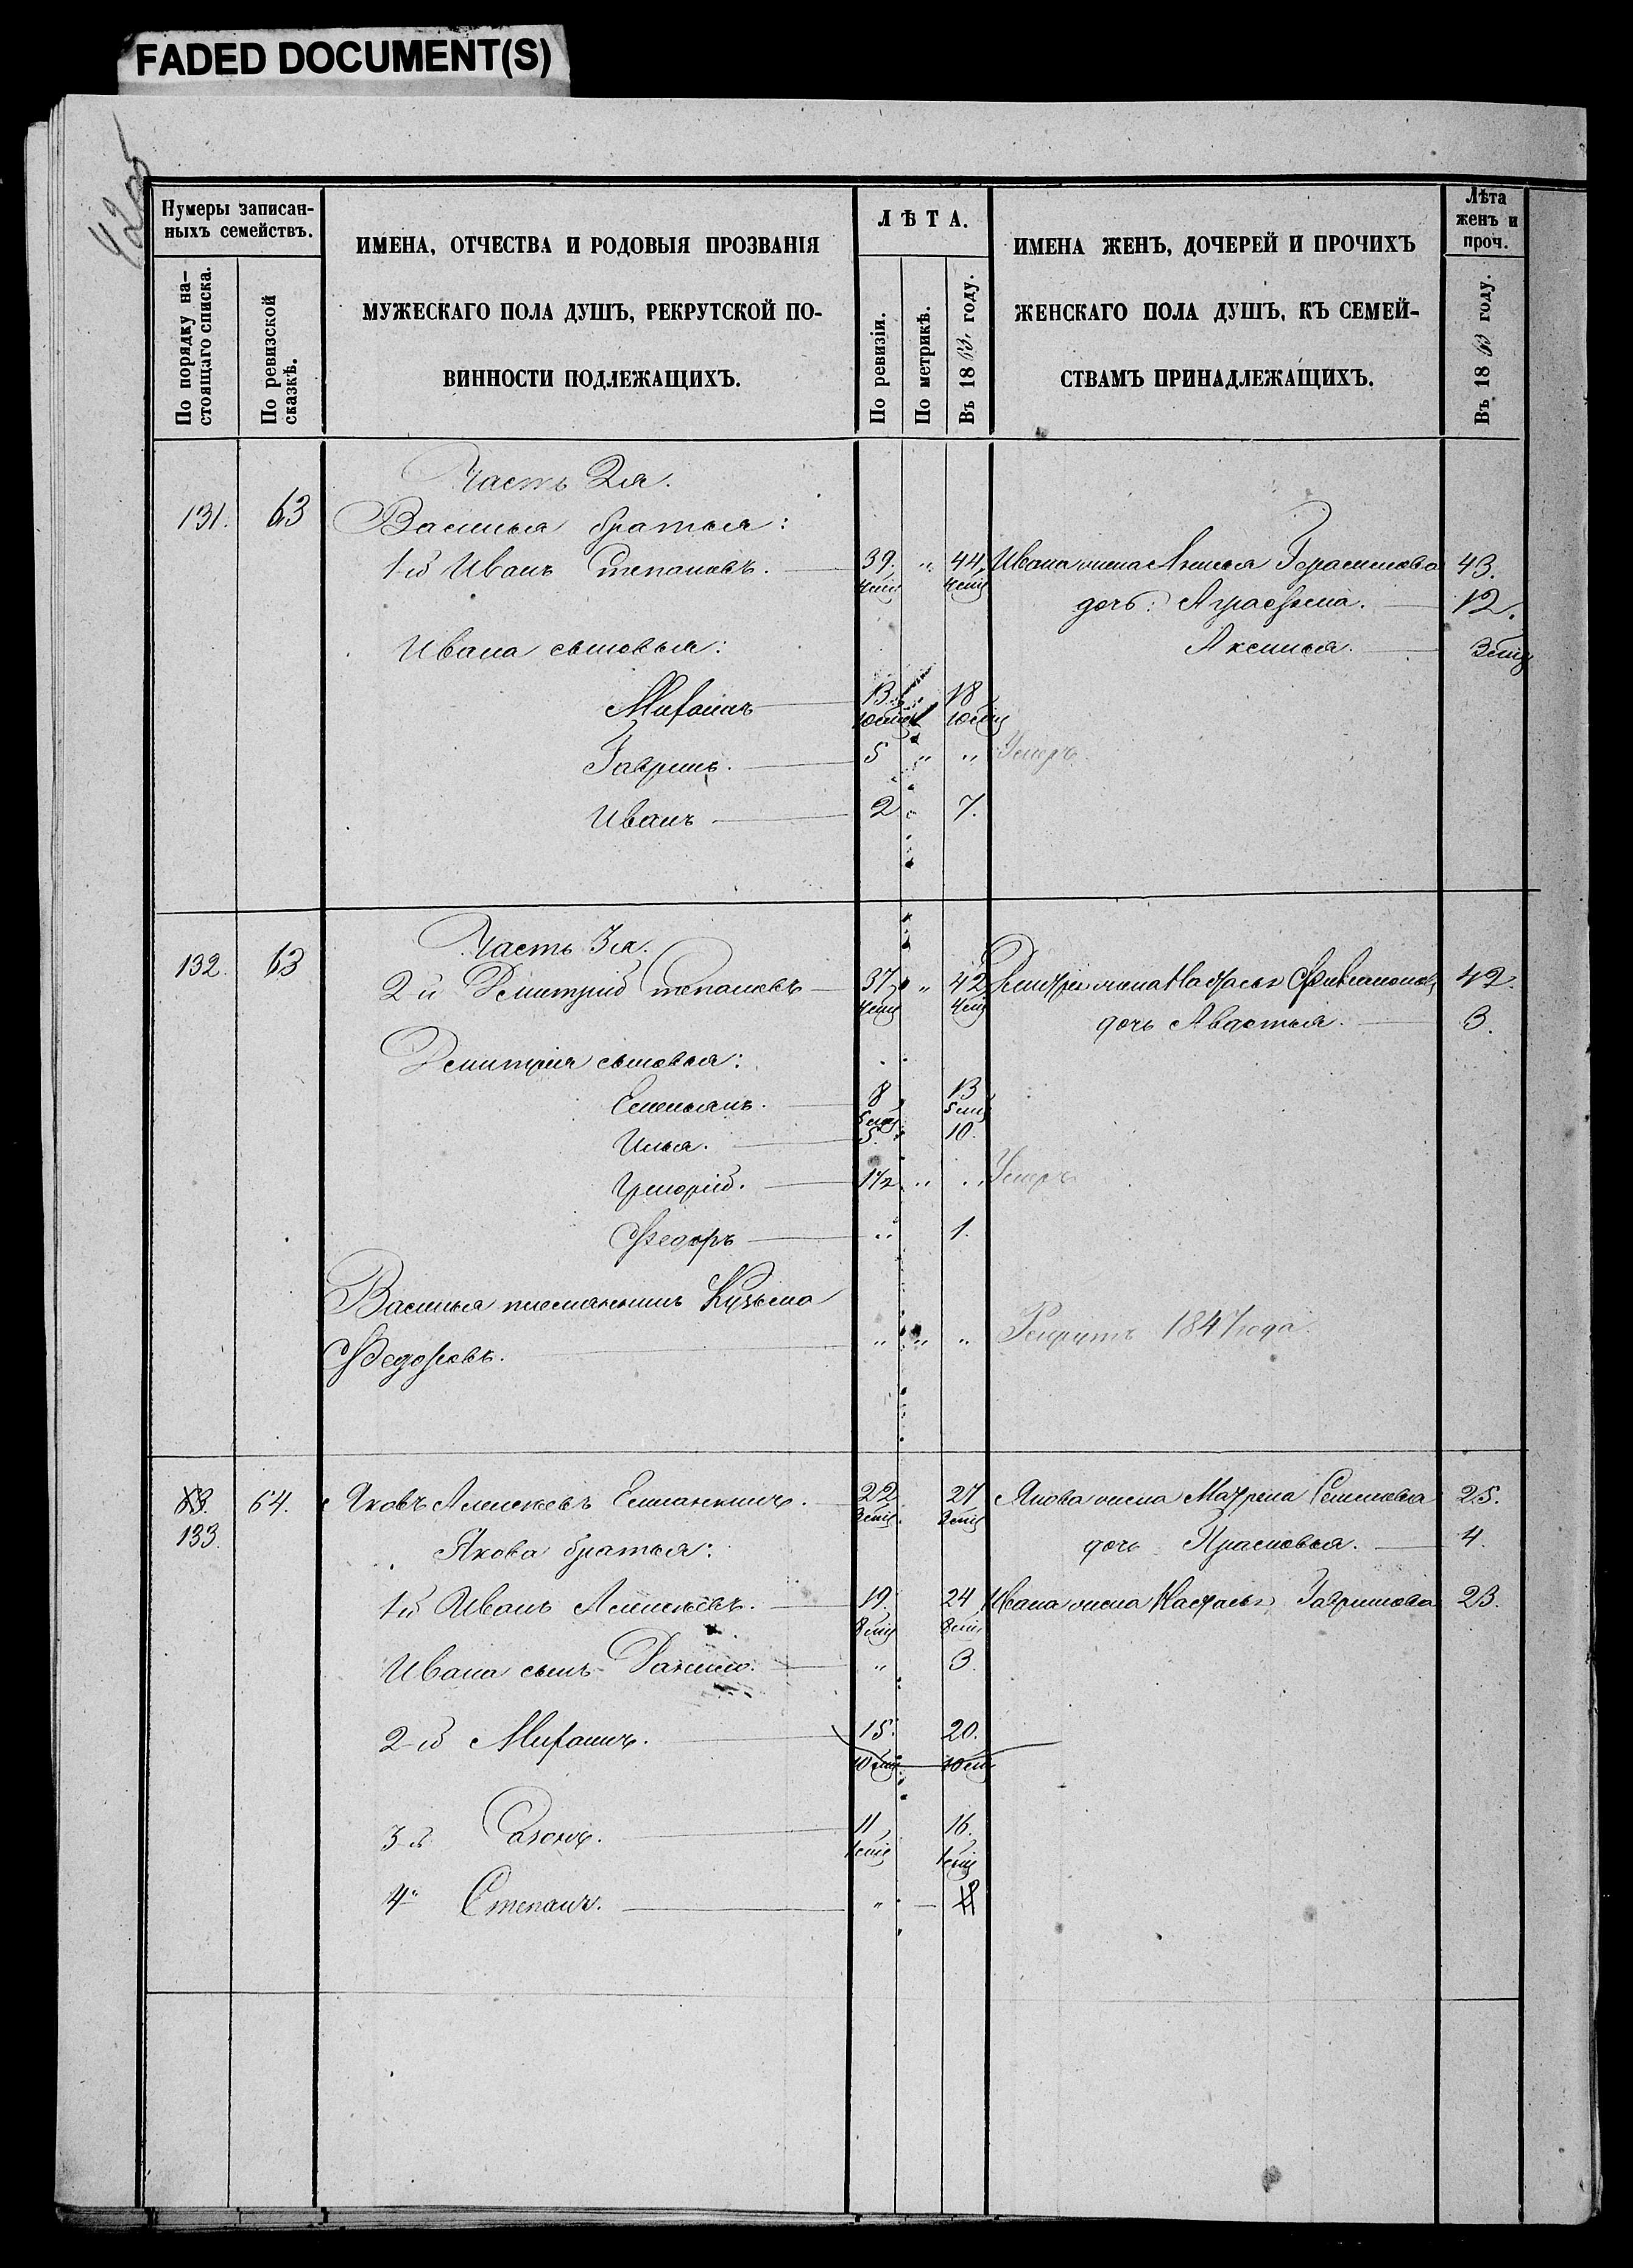 FADED DOCUMENT(S)
Нумеры записан-
ныхъ семействъ.
По порядку на-
стоящаго списка.
По ревизской
сказкѣ.
ИМЕНА, ОТЧЕСТВА И РОДОВЫЯ ПРОЗВАНІЯ
МУЖЕСКАГО ПОЛА ДУШЪ, РЕКРУТСКОЙ ПО-
ВИННОСТИ ПОДЛЕЖАЩИХЪ.
ЛѢТА.
По ревизіи.
По метрикѣ.
Въ 1863 году.
ИМЕНА ЖЕНЪ, ДОЧЕРЕЙ И ПРОЧИХЪ
ЖЕНСКАГО ПОЛА ДУШЪ, КЪ СЕМЕЙ-
СТВАМЪ ПРИНАДЛЕЖАЩИХЪ.
Лѣта
женъ и
проч.
Въ 1863 году.
Часть 2я.
131. 63 Василья братья:
1й Иванъ Степановъ. 39. " 44 Ивана жена Анисья Герасимова 43.
4 мѣс 4 мѣс дочь: Аграфена. 12.
Ивана сыновья: Аксинья. 3 мѣс
Миронъ 13 " 18
10 мѣс 10 мѣс
Гаврилъ. 5 " " Умеръ
Иванъ 2 " 7.
Часть 3я.
132. 63 2й Дмитрій Степановъ 37 " 42 Дмитрія жена Настасья 42.
4 мѣс 4 мѣс дочь Авдотья. 3.
Дмитрія сыновья:
Емельянъ. 8 13
5 мѣс 5 мѣс
Илья. 5. 10.
Григорій. 1 1/2 " " Умеръ
Федоръ " 1.
Василья племянникъ Кузьма
Федоровъ. " " " Рекрутъ 1847 года.
64. Яковъ Алексѣевъ 22 27 Якова жена Матрена Семенова 25.
133. 3 мѣс 3 мѣс
Якова братья: дочь Прасковья. 4.
1й Иванъ Алексѣевъ. 19. 24 Ивана жена Настасья Гаврилова 23.
8 мѣс 8 мѣс
Ивана сынъ Данило. " 3.
2й Миронъ. 15. 20.
10 мѣс 10 мѣс
3й Сазонъ. 11 16.
1 мѣс 1 мѣс
4й Степанъ. "